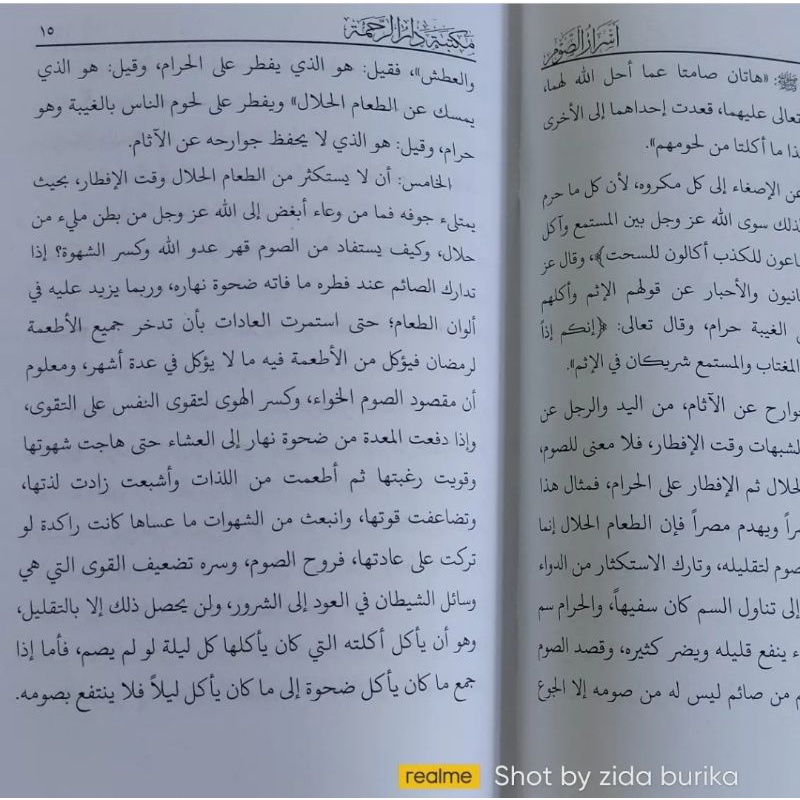 أسرار الصوم
ﷺ: «هاتان صامتا عما أحل الله لهما،
تعالى عليهما، قعدت إحداهما إلى الأخرى
ذا ما أكلتا من لحومهم».
عن الإصغاء إلى كل مكروه، لأن كل ما حرم
ذلك سوى الله عز وجل بين المستمع وآكل
اعون للكذب أكالون للسحت﴾، وقال عز
انيون والأحبار عن قولهم الإثم وأكلهم
الغيبة حرام، وقال تعالى: ﴿إنكم إذاً
المغتاب والمستمع شريكان في الإثم».
وارح عن الآثام، من اليد والرجل عن
لشبهات وقت الإفطار، فلا معنى للصوم،
لحلال ثم الإفطار على الحرام، فمثال هذا
راً ويهدم مصراً فإن الطعام الحلال إنما
صوم لتقليله، وتارك الاستكثار من الدواء
إلى تناول السم كان سفيهاً، والحرام سم
ء ينفع قليله ويضر كثيره، وقصد الصوم
م من صائم ليس له من صومه إلا الجوع
مكتبة دار الرحمة ١٥
والعطش»، فقيل: هو الذي يفطر على الحرام، وقيل: هو الذي
يمسك عن الطعام الحلال» ويفطر على لحوم الناس بالغيبة وهو
حرام، وقيل: هو الذي لا يحفظ جوارحه عن الآثام.
الخامس: أن لا يستكثر من الطعام الحلال وقت الإفطار، بحيث
يمتلىء جوفه فما من وعاء أبغض إلى الله عز وجل من بطن مليء من
حلال، وكيف يستفاد من الصوم قهر عدو الله وكسر الشهوة؟ إذا
تدارك الصائم عند فطره ما فاته ضحوة نهاره، وربما يزيد عليه في
ألوان الطعام؛ حتى استمرت العادات بأن تدخر جميع الأطعمة
لرمضان فيؤكل من الأطعمة فيه ما لا يؤكل في عدة أشهر، ومعلوم
أن مقصود الصوم الخواء، وكسر الهوى لتقوى النفس على التقوى،
وإذا دفعت المعدة من ضحوة نهار إلى العشاء حتى هاجت شهوتها
وقويت رغبتها ثم أطعمت من اللذات وأشبعت زادت لذتها،
وتضاعفت قوتها، وانبعث من الشهوات ما عساها كانت راكدة لو
تركت على عادتها، فروح الصوم، وسره تضعيف القوى التي هي
وسائل الشيطان في العود إلى الشرور، ولن يحصل ذلك إلا بالتقليل،
وهو أن يأكل أكلته التي كان يأكلها كل ليلة لو لم يصم، فأما إذا
جمع ما كان يأكل ضحوة إلى ما كان يأكل ليلاً فلا ينتفع بصومه.
realme Shot by zida burika